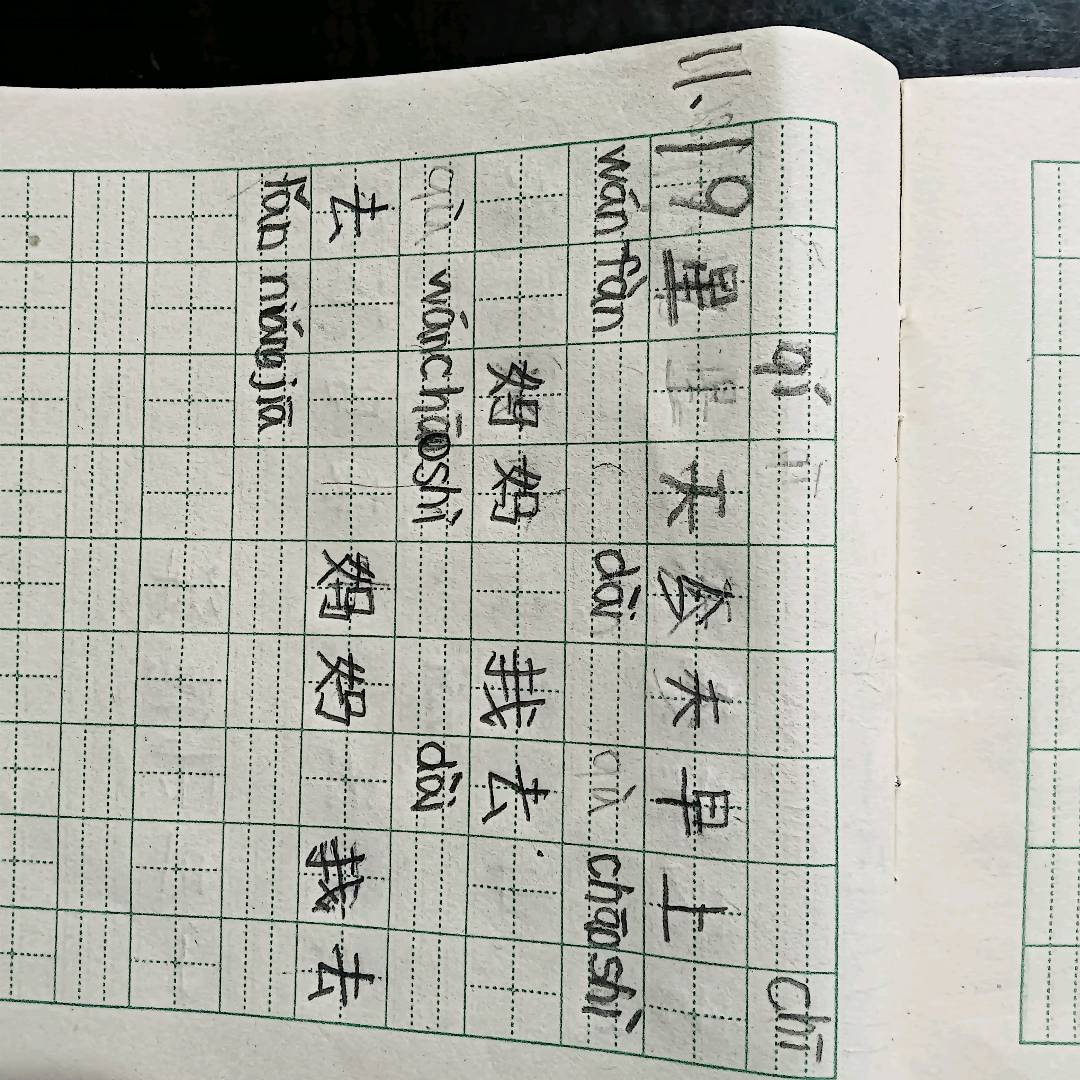 11.19
qí chī
星 天 今天早上
wán fàn dài qù chāoshì
妈妈 我去
qù wán chāoshì dài
去 妈妈 我去
fǎn niángjiā